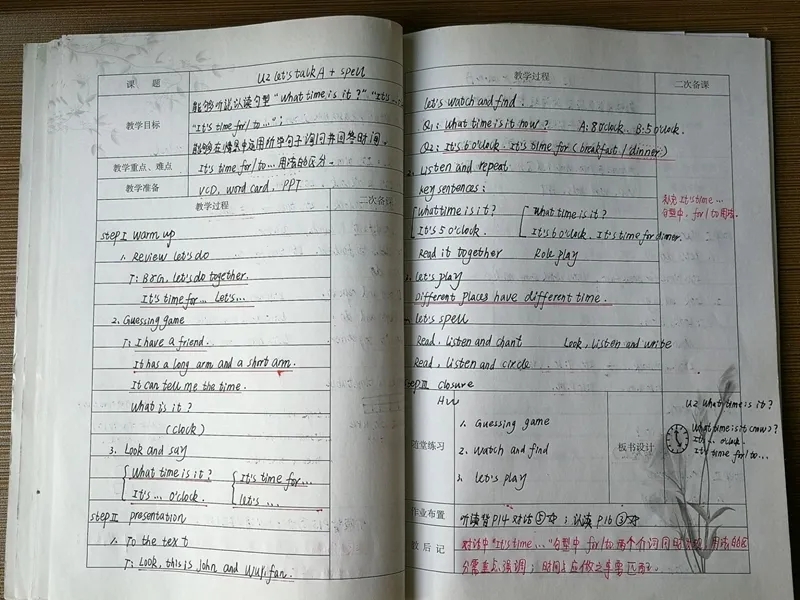 课 题
U2 let's talk A + spell
教学目标
能够听说认读句型 "What time is it?" "It's ...
"It's time for/to...";
能够在情景中运用所学句子询问并回答时间。
教学重点、难点
It's time for/to... 用法的区分.
教学准备
VCD, word card, PPT
教学过程
二次备课
step I warm up
1. Review let's do
T: B&G, let's do together.
It's time for... Let's...
2. Guessing game
T: I have a friend.
It has a long arm and a short arm.
It can tell me the time.
What is it?
(clock)
3. Look and say
What time is it?
It's time for...
It's... o'clock.
let's ...
step II presentation
1. To the text
T: Look, this is John and Wu Yifan.
教学过程
二次备课
let's watch and find.
Q1: What time is it now? A: 8 o'clock. B: 5 o'clock.
Q2: It's 6 o'clock. It's time for (breakfast / dinner)
2. Listen and repeat
Key sentences:
What time is it?
It's 5 o'clock.
What time is it?
It's 6 o'clock. It's time for dinner.
补充 It's time ...
句型中, for/to 用法.
Read it together Role play
let's play
Different places have different time.
let's spell
Read, listen and chant Look, listen and write
Read, listen and circle
step III closure
HW
随堂练习
1. Guessing game
2. Watch and find
3. let's play
板书设计
U2 What time is it?
What time is it (now)?
It's ... o'clock.
It's time for/to...
作业布置
听读背P14对话⑤; 认读P16③
教后记
对话中 "It's time..." 句型中 for/to 两个介词同时出现, 用法的区
分需重点强调; 时间与应做之事要匹配.